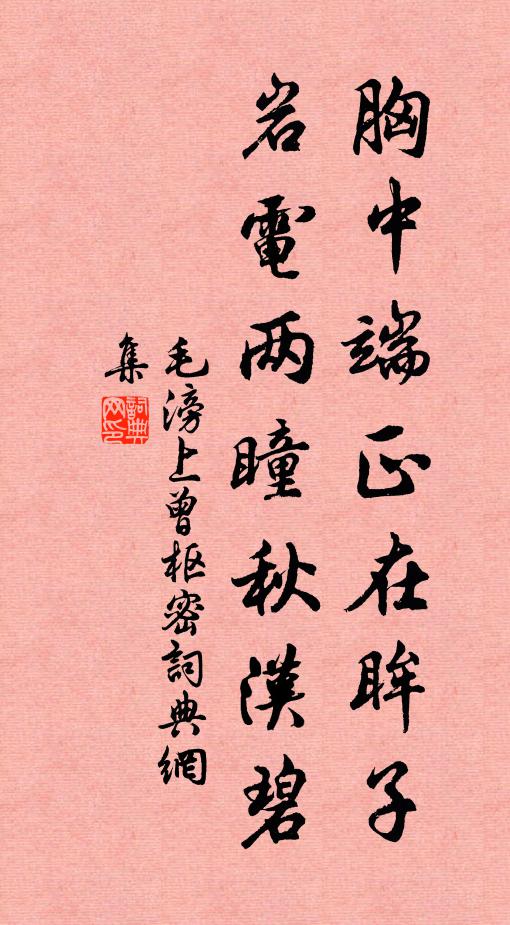 胸中端正在眸子
岩電两瞳秋漢碧
毛滂上曾枢密詞典網
集
詞典网印